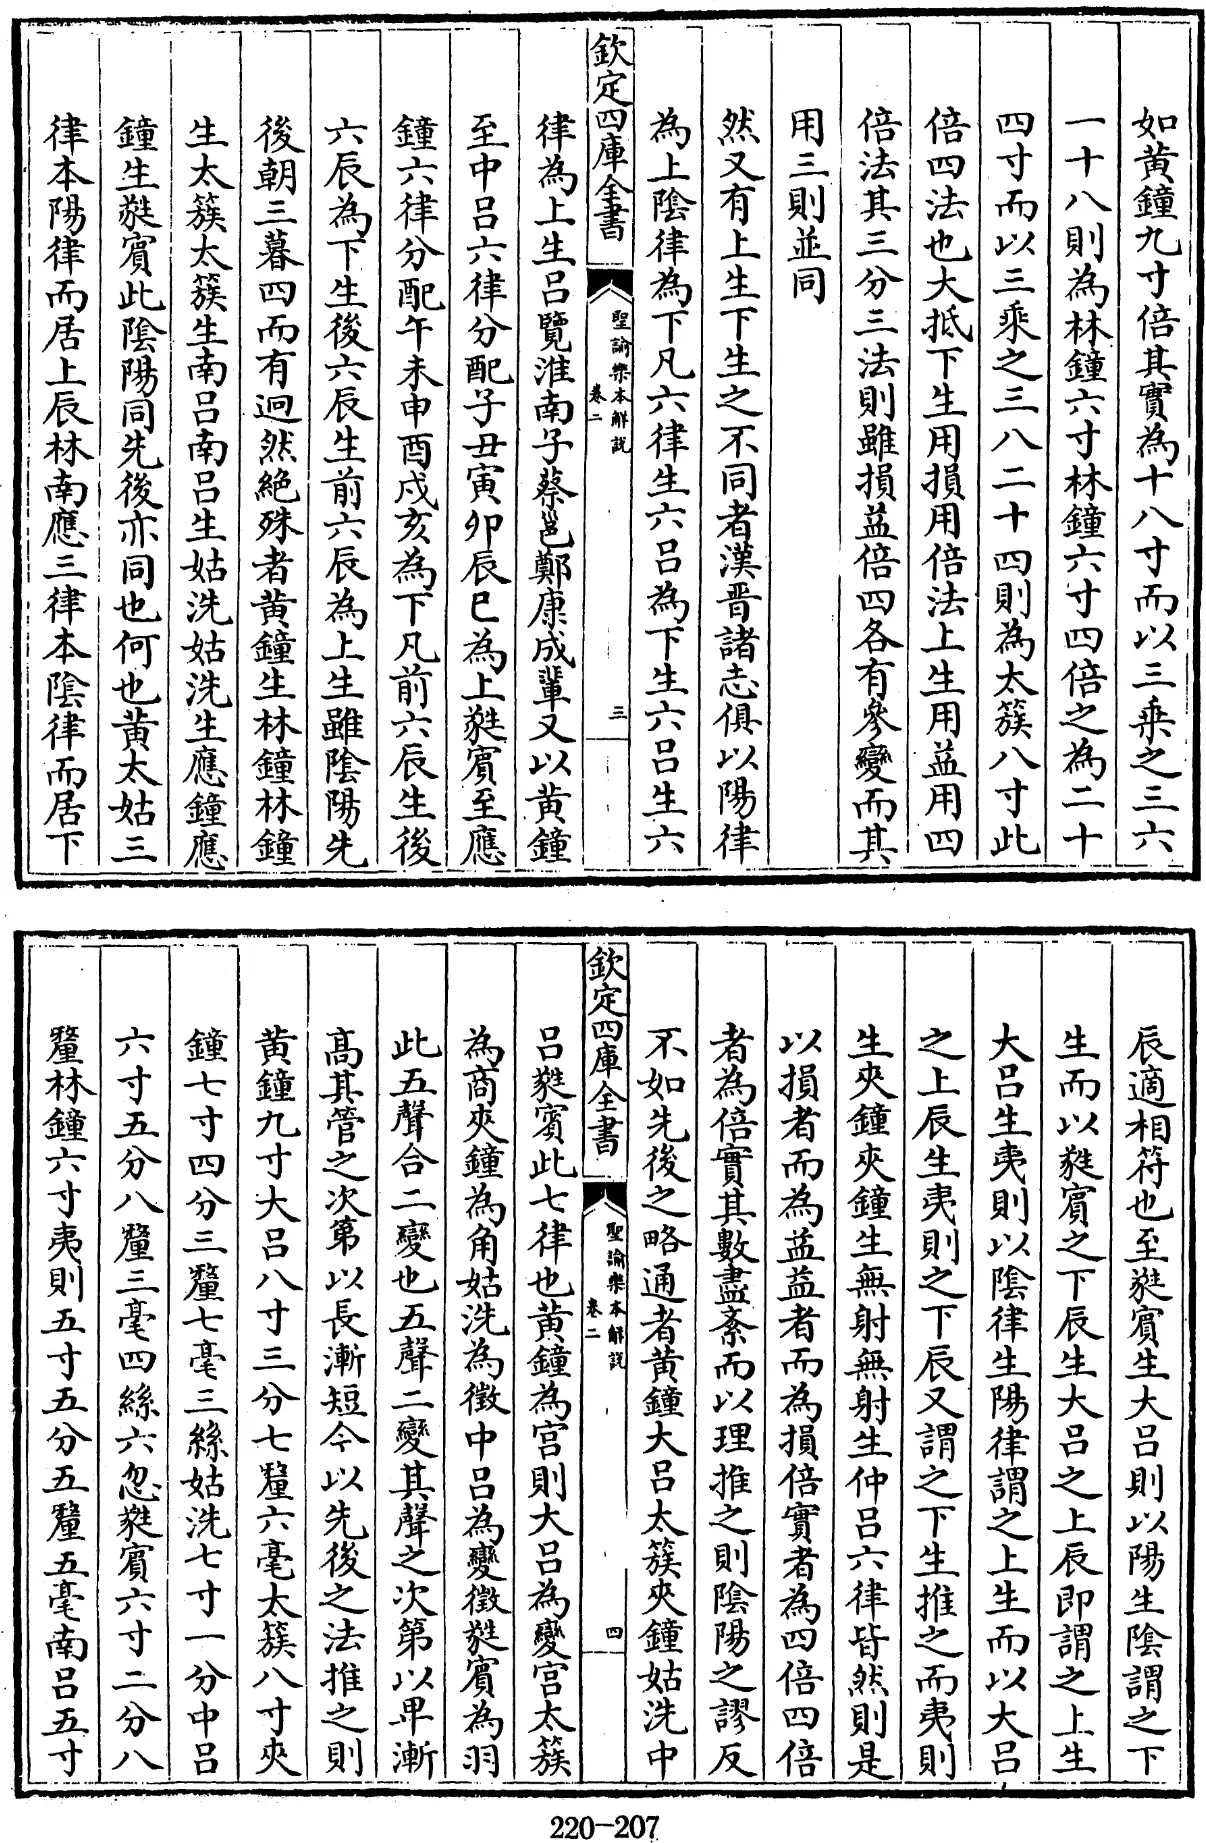 如黄鐘九寸倍其實為十八寸而以三乘之三六
一十八則為林鐘六寸林鐘六寸四倍之為二十
四寸而以三乘之三八二十四則為太簇八寸此
倍四法也大抵下生用損用倍法上生用益用四
倍法其三分三法則雖損益倍四各有參變而其
用三則並同
然又有上生下生之不同者漢晋諸志俱以陽律
為上陰律為下凡六律生六呂為下生六呂生六
欽定四庫全書
聖諭樂本解説
卷二
三
律為上生呂覽淮南子蔡邕鄭康成輩又以黄鐘
至中呂六律分配子丑寅卯辰巳為上蕤賓至應
鐘六律分配午未申酉戌亥為下凡前六辰生後
六辰為下生後六辰生前六辰為上生雖陰陽先
後朝三暮四而有迥然絶殊者黄鐘生林鐘林鐘
生太簇太簇生南呂南呂生姑洗姑洗生應鐘應
鐘生蕤賓此陰陽同先後亦同也何也黄太姑三
律本陽律而居上辰林南應三律本陰律而居下
辰適相符也至蕤賓生大呂則以陽生陰謂之下
生而以蕤賓之下辰生大呂之上辰即謂之上生
大呂生夷則以陰律生陽律謂之上生而以大呂
之上辰生夷則之下辰又謂之下生推之而夷則
生夾鐘夾鐘生無射無射生仲呂六律皆然則是
以損者而為益益者而為損倍實者為四倍四倍
者為倍實其數盡紊而以理推之則陰陽之謬反
不如先後之略通者黄鐘大呂太簇夾鐘姑洗中
欽定四庫全書
聖諭樂本解説
卷二
四
呂蕤賓此七律也黄鐘為宫則大呂為變宫太簇
為商夾鐘為角姑洗為徵中呂為變徵蕤賓為羽
此五聲合二變也五聲二變其聲之次第以卑漸
高其管之次第以長漸短今以先後之法推之則
黄鐘九寸大呂八寸三分七釐六毫太簇八寸夾
鐘七寸四分三釐七毫三絲姑洗七寸一分中呂
六寸五分八釐三毫四絲六忽蕤賓六寸二分八
釐林鐘六寸夷則五寸五分五釐五毫南呂五寸
220-207